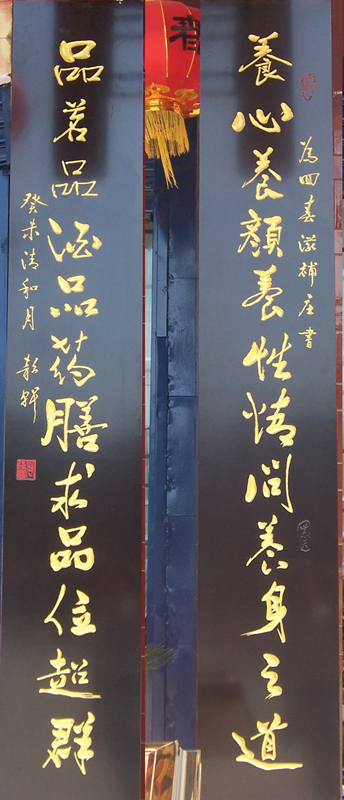 養心養顏養性情問養身之道
為四春滋補庄書
品茗品酒品药膳求品位超群
癸未清和月